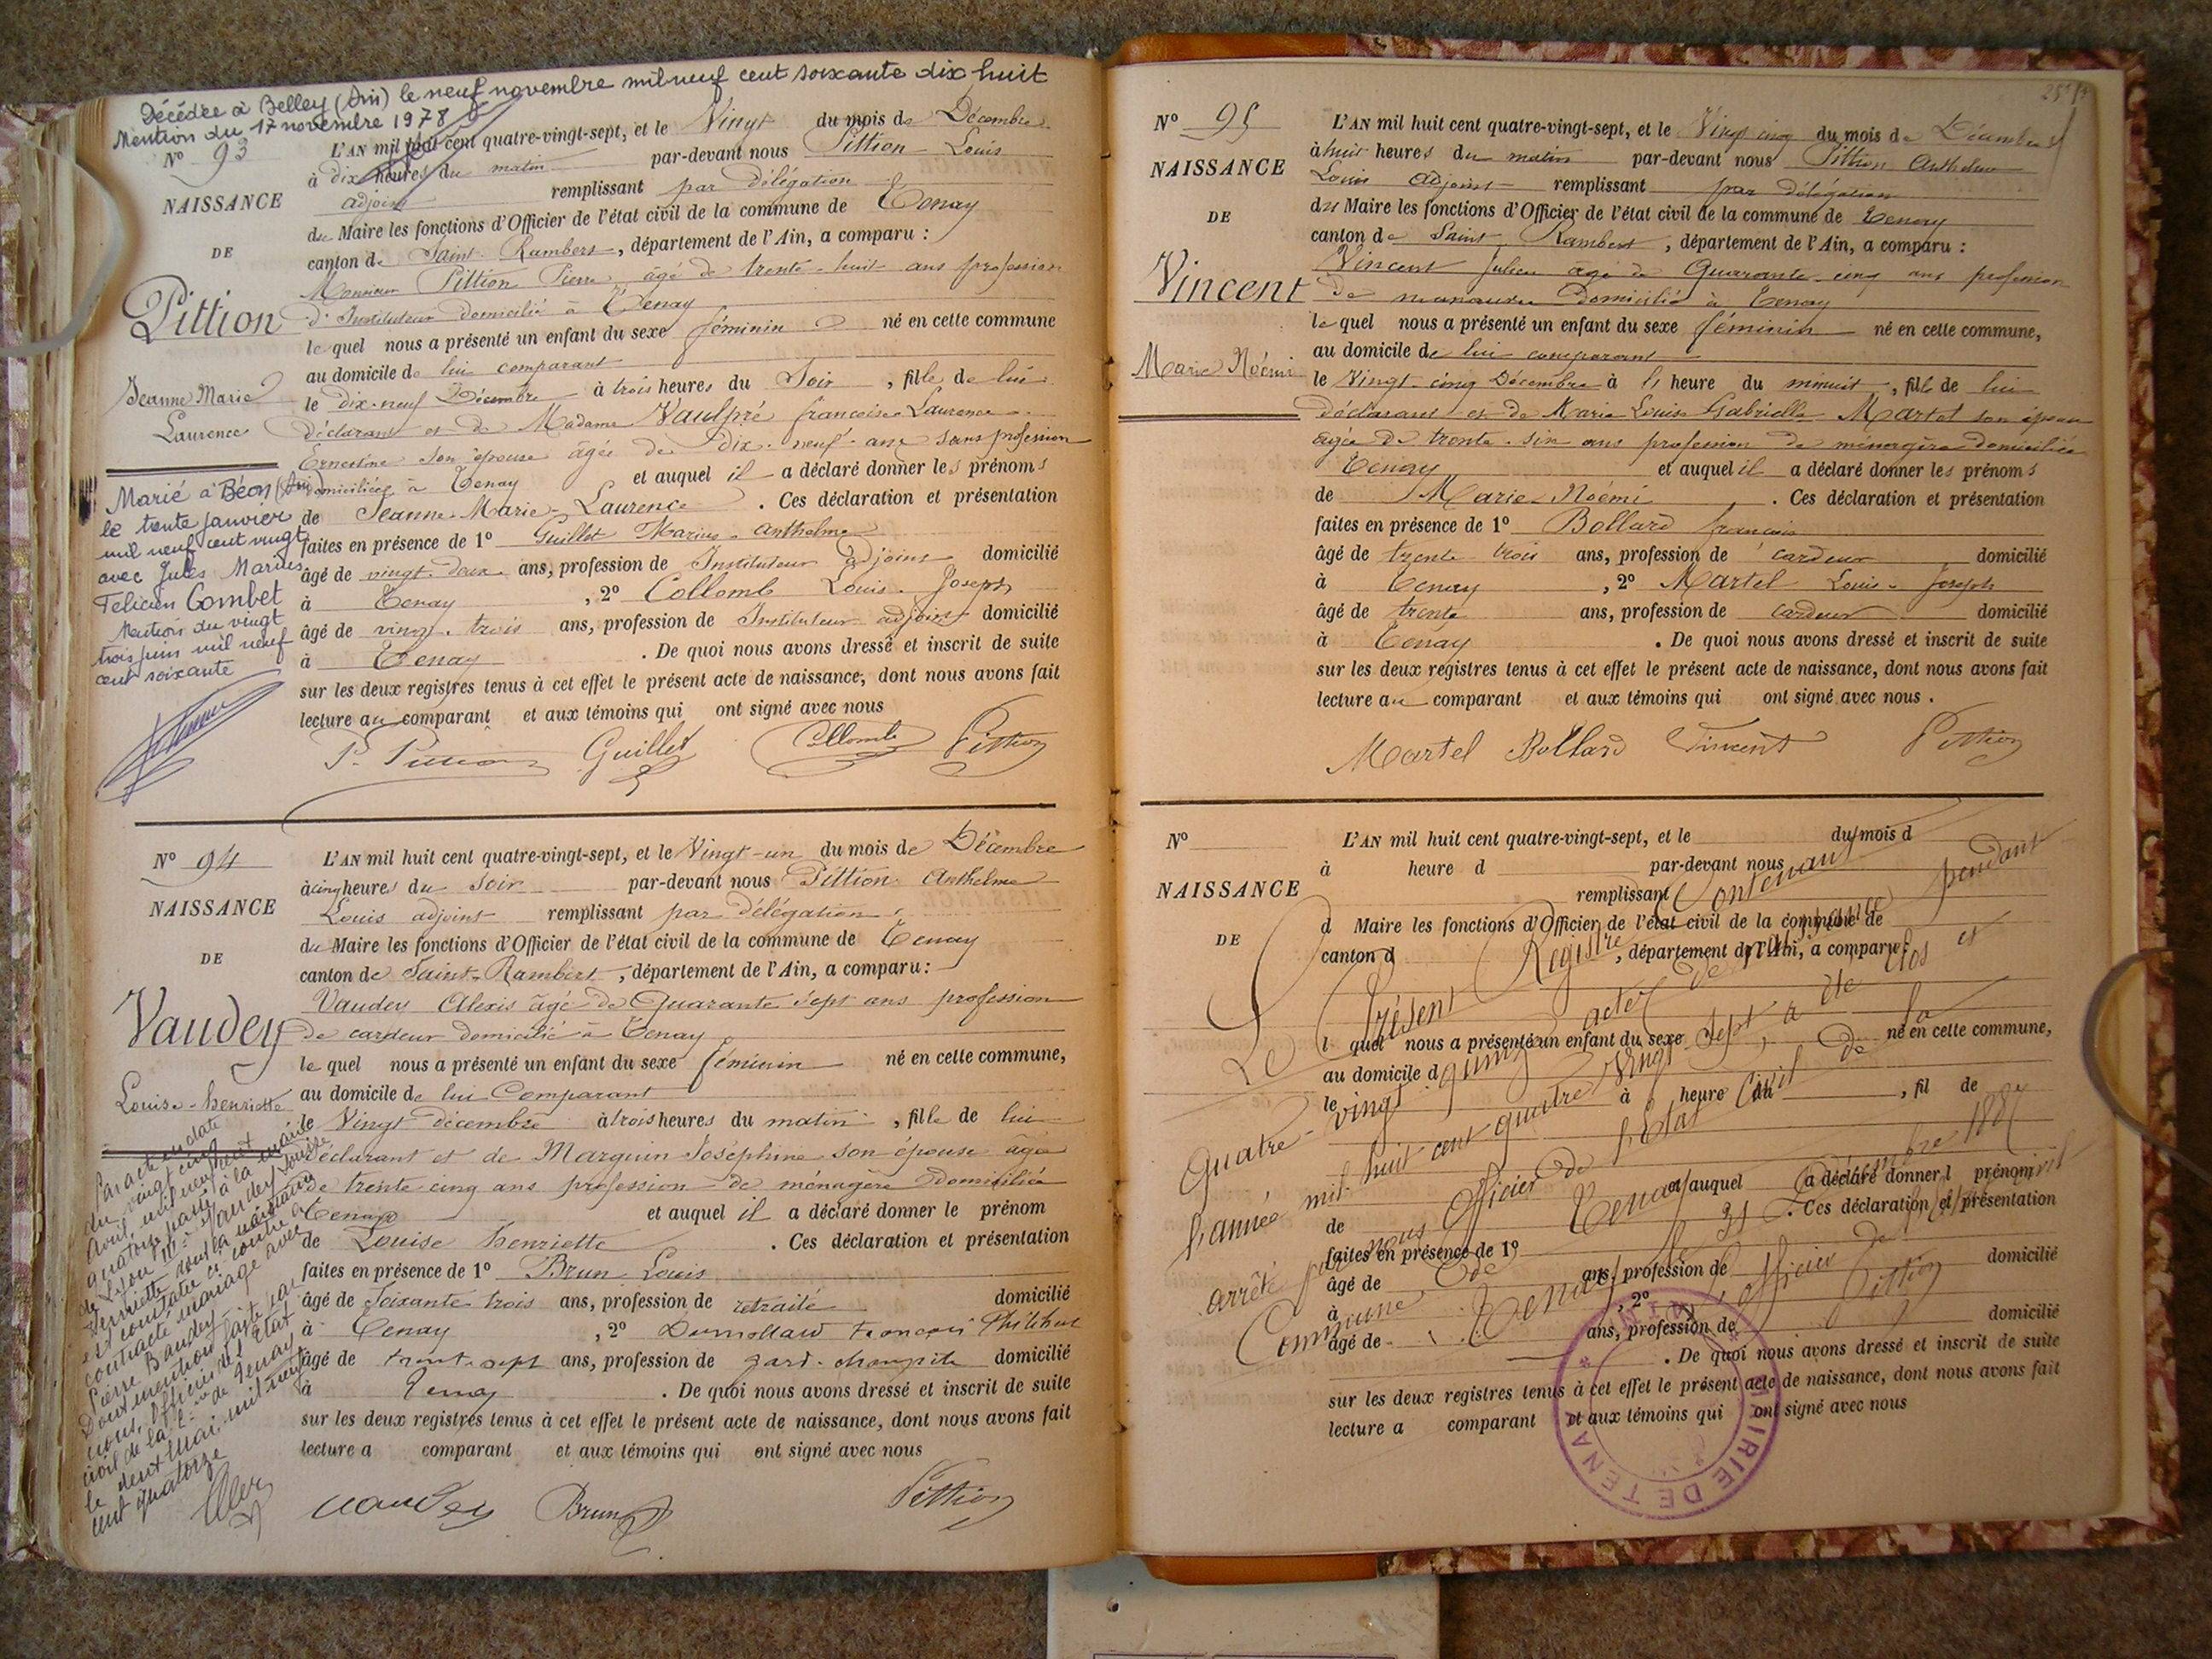 Décédée à Belley (Ain) le neuf novembre mil neuf cent soixante dix huit
Mention du 17 novembre 1978
N° 93
NAISSANCE
DE
Pittion
Jeanne Marie
Laurence
Marié à Béon (Ain)
le trente janvier
mil neuf cent vingt
avec Jules Marius
Felicien Combet
Mention du vingt
trois juin mil neuf
cent soixante
L'AN mil huit cent quatre-vingt-sept, et le Vingt du mois de Décembre
à dix heures du matin par-devant nous Pittion Louis
adjoint remplissant par délégation
du Maire les fonctions d'Officier de l'état civil de la commune de Tenay
canton de Saint Rambert, département de l'Ain, a comparu :
Monsieur Pittion Pierre âgé de trente-huit ans profession
d'Instituteur domicilié à Tenay
lequel nous a présenté un enfant du sexe féminin né en cette commune
au domicile de lui comparant
le dix-neuf Décembre à trois heures du Soir, fille de lui
déclarant et de Madame Vaulpré françoise Laurence
Ernestine son épouse âgée de dix-neuf ans sans profession
domiciliée à Tenay et auquel il a déclaré donner les prénoms
de Jeanne-Marie-Laurence. Ces déclaration et présentation
faites en présence de 1° Guillet Marius-Anthelme
âgé de vingt-deux ans, profession de Instituteur adjoint domicilié
à Tenay, 2° Collomb Louis-Joseph
âgé de vingt-trois ans, profession de Instituteur adjoint domicilié
à Tenay. De quoi nous avons dressé et inscrit de suite
sur les deux registres tenus à cet effet le présent acte de naissance, dont nous avons fait
lecture au comparant et aux témoins qui ont signé avec nous
P. Pittion Guillet Collomb Pittion
N° 94
NAISSANCE
DE
Vaudey
Louise-henriette
Par acte en date
du vingt cinq
Avril mil neuf cent
quatorze passé à la mairie
de Lyon III Vaudey Louise
Henriette dont la naissance
est constatée ci contre a
contracté mariage avec
Pierre Baudey
Dont mention faite par
nous, officier de l'Etat
civil de la Cne de Tenay
le deux Mai mil neuf
cent quatorze
L'AN mil huit cent quatre-vingt-sept, et le Vingt-un du mois de Décembre
à cinq heures du Soir par-devant nous Pittion Anthelme
Louis adjoint remplissant par délégation
du Maire les fonctions d'Officier de l'état civil de la commune de Tenay
canton de Saint-Rambert, département de l'Ain, a comparu :
Vaudey Alexis âgé de Quarante sept ans profession
de cardeur domicilié à Tenay
lequel nous a présenté un enfant du sexe féminin né en cette commune,
au domicile de lui Comparant
le Vingt décembre à trois heures du matin, fille de lui
déclarant et de Marguin Joséphine son épouse âgée
de trente cinq ans profession de ménagère domiciliée
Tenay et auquel il a déclaré donner le prénom
de Louise henriette. Ces déclaration et présentation
faites en présence de 1° Brun Louis
âgé de Soixante trois ans, profession de retraité domicilié
à Tenay, 2° Dumollard François
âgé de trente-sept ans, profession de gard-champêtre domicilié
à Tenay. De quoi nous avons dressé et inscrit de suite
sur les deux registres tenus à cet effet le présent acte de naissance, dont nous avons fait
lecture a comparant et aux témoins qui ont signé avec nous
Vaudey Brun Pittion
N° 95
NAISSANCE
DE
Vincent
Marie Noémi
L'AN mil huit cent quatre-vingt-sept, et le Vingt cinq du mois de Décembre
à huit heures du matin par-devant nous Pittion Anthelme
Louis Adjoint remplissant par délégation
du Maire les fonctions d'Officier de l'état civil de la commune de Tenay
canton de Saint Rambert, département de l'Ain, a comparu :
Vincent Julien âgé de Quarante-cinq ans profession
de manœuvre domicilié à Tenay
lequel nous a présenté un enfant du sexe féminin né en cette commune,
au domicile de lui comparant
le Vingt-cinq Décembre à heure du minuit, fille de lui
déclarant et de Marie Louise Gabrielle Martel son épouse
âgée de trente-six ans profession de ménagère domiciliée
Tenay et auquel il a déclaré donner les prénoms
de Marie-Noémi. Ces déclaration et présentation
faites en présence de 1° Bollard françois
âgé de trente trois ans, profession de cardeur domicilié
à Tenay, 2° Martel Louis-Joseph
âgé de trente ans, profession de cardeur domicilié
à Tenay. De quoi nous avons dressé et inscrit de suite
sur les deux registres tenus à cet effet le présent acte de naissance, dont nous avons fait
lecture au comparant et aux témoins qui ont signé avec nous.
Martel Bollard Vincent Pittion
N°
NAISSANCE
DE
L'AN mil huit cent quatre-vingt-sept, et le du mois d
à heure d par-devant nous
remplissant
d Maire les fonctions d'Officier de l'état civil de la commune de
canton d , département de l'Ain, a comparu :
l quel nous a présenté un enfant du sexe né en cette commune,
au domicile d
le à heure du , fil de
et auquel a déclaré donner l prénom
de . Ces déclaration et présentation
faites en présence de 1°
âgé de ans, profession de domicilié
à , 2°
âgé de ans, profession de domicilié
. De quoi nous avons dressé et inscrit de suite
sur les deux registres tenus à cet effet le présent acte de naissance, dont nous avons fait
lecture a comparant et aux témoins qui ont signé avec nous
Le Présent Registre Contenant
Quatre-vingt quinze actes de naissance pendant
l'année mil huit cent quatre vingt sept, a été clos et
arrêté par nous officier de l'état Civil de la
Commune de Tenay le 31 Décembre 1887
Tenay l'officier de l'état civil
Pittion
MAIRIE DE TENAY * AIN *